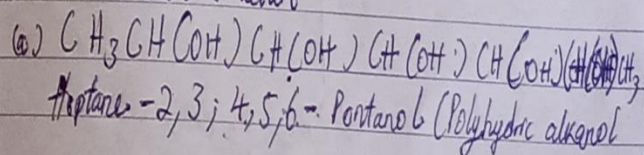 (a) CH3CH(OH)CH(OH)CH(OH)CH(OH)CH(OH)CH3
Heptane-2,3,4,5,6-Pontanol (Polyhydric alkanol